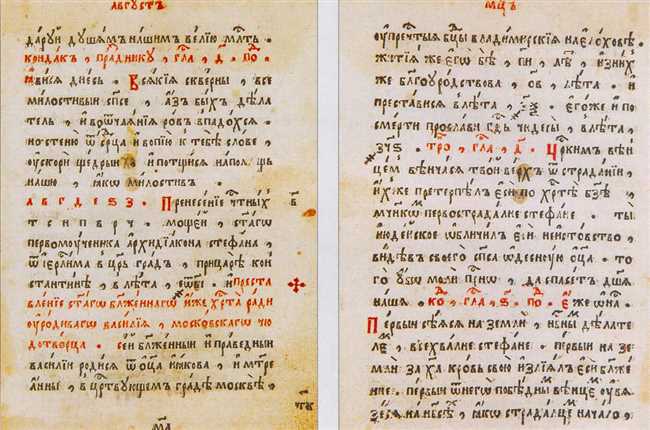 АВГУСТЪ
даруи душамъ нашимъ велїю мл҃ть
кондакъ , праднику , гла , д҃ . по .
ꙗвися днесь . Всякїя скверны , все
милостивыи сп҃се , азъ быхъ дѣла
тель , и во ѿчаянїя ровъ впадохся .
но стеню ѿ ср҃ца и вопїю к тебѣ слове ,
ускори щедрыи и потщися на помощь
нашю , ꙗкѡ милостивъ .
Пренесенїе чт҃ныхъ
мощеи , ст҃агѡ
первомоученика архидїакона стефана ,
ѿ іер҃лима в цр҃ь градъ , при царѣ кон
стантинѣ , в лѣта , . и преста
вленїе ст҃агѡ бл҃женнагѡ , иже хр҃та ради
оуродивагѡ василїя , московскагѡ чю
дотворца . сеи бл҃женныи и праведныи
василїи родися ѿ оц҃а иакова , и мт҃ре
анны , в цр҃твующемъ градѣ москвѣ ,
МЦ҃Ъ
оу пречтыя бц҃ы владимерскїя на елоховѣ .
житїя же егѡ бѣ , лѣ , и з них
же благоуродствова , ов , лѣта . и
преставися в лѣта , . егоже и по
смерти прослави гд҃ь чюдесы , в лѣта ,
тро , гла , д҃ . Цр҃кимъ вѣн
цемъ вѣнчася твои верхъ ѿ страданїи ,
ихже претерпѣлъ еси по хр҃тѣ бз҃ѣ ,
мч҃никѡмъ первострадалне стефане . ты
июдейское обличилъ еси неистовство ,
видѣвъ своего сп҃са ѡдесную оц҃а . то
го убѡ моли прнѡ , да спасетъ дш҃а
наша . ко , гла , ѕ҃ . по . Еже ѡ на .
Первыи сѣяся на земли , нбн҃ыи дѣлате
ле , всехвалне стефане . первыи на зе
мли за х҃а кровь свою излїялъ еси блаже
не . первыи ѿ негѡ побѣды вѣнце увя
зеся на нб҃сѣ , ꙗкѡ страдалце начало ,